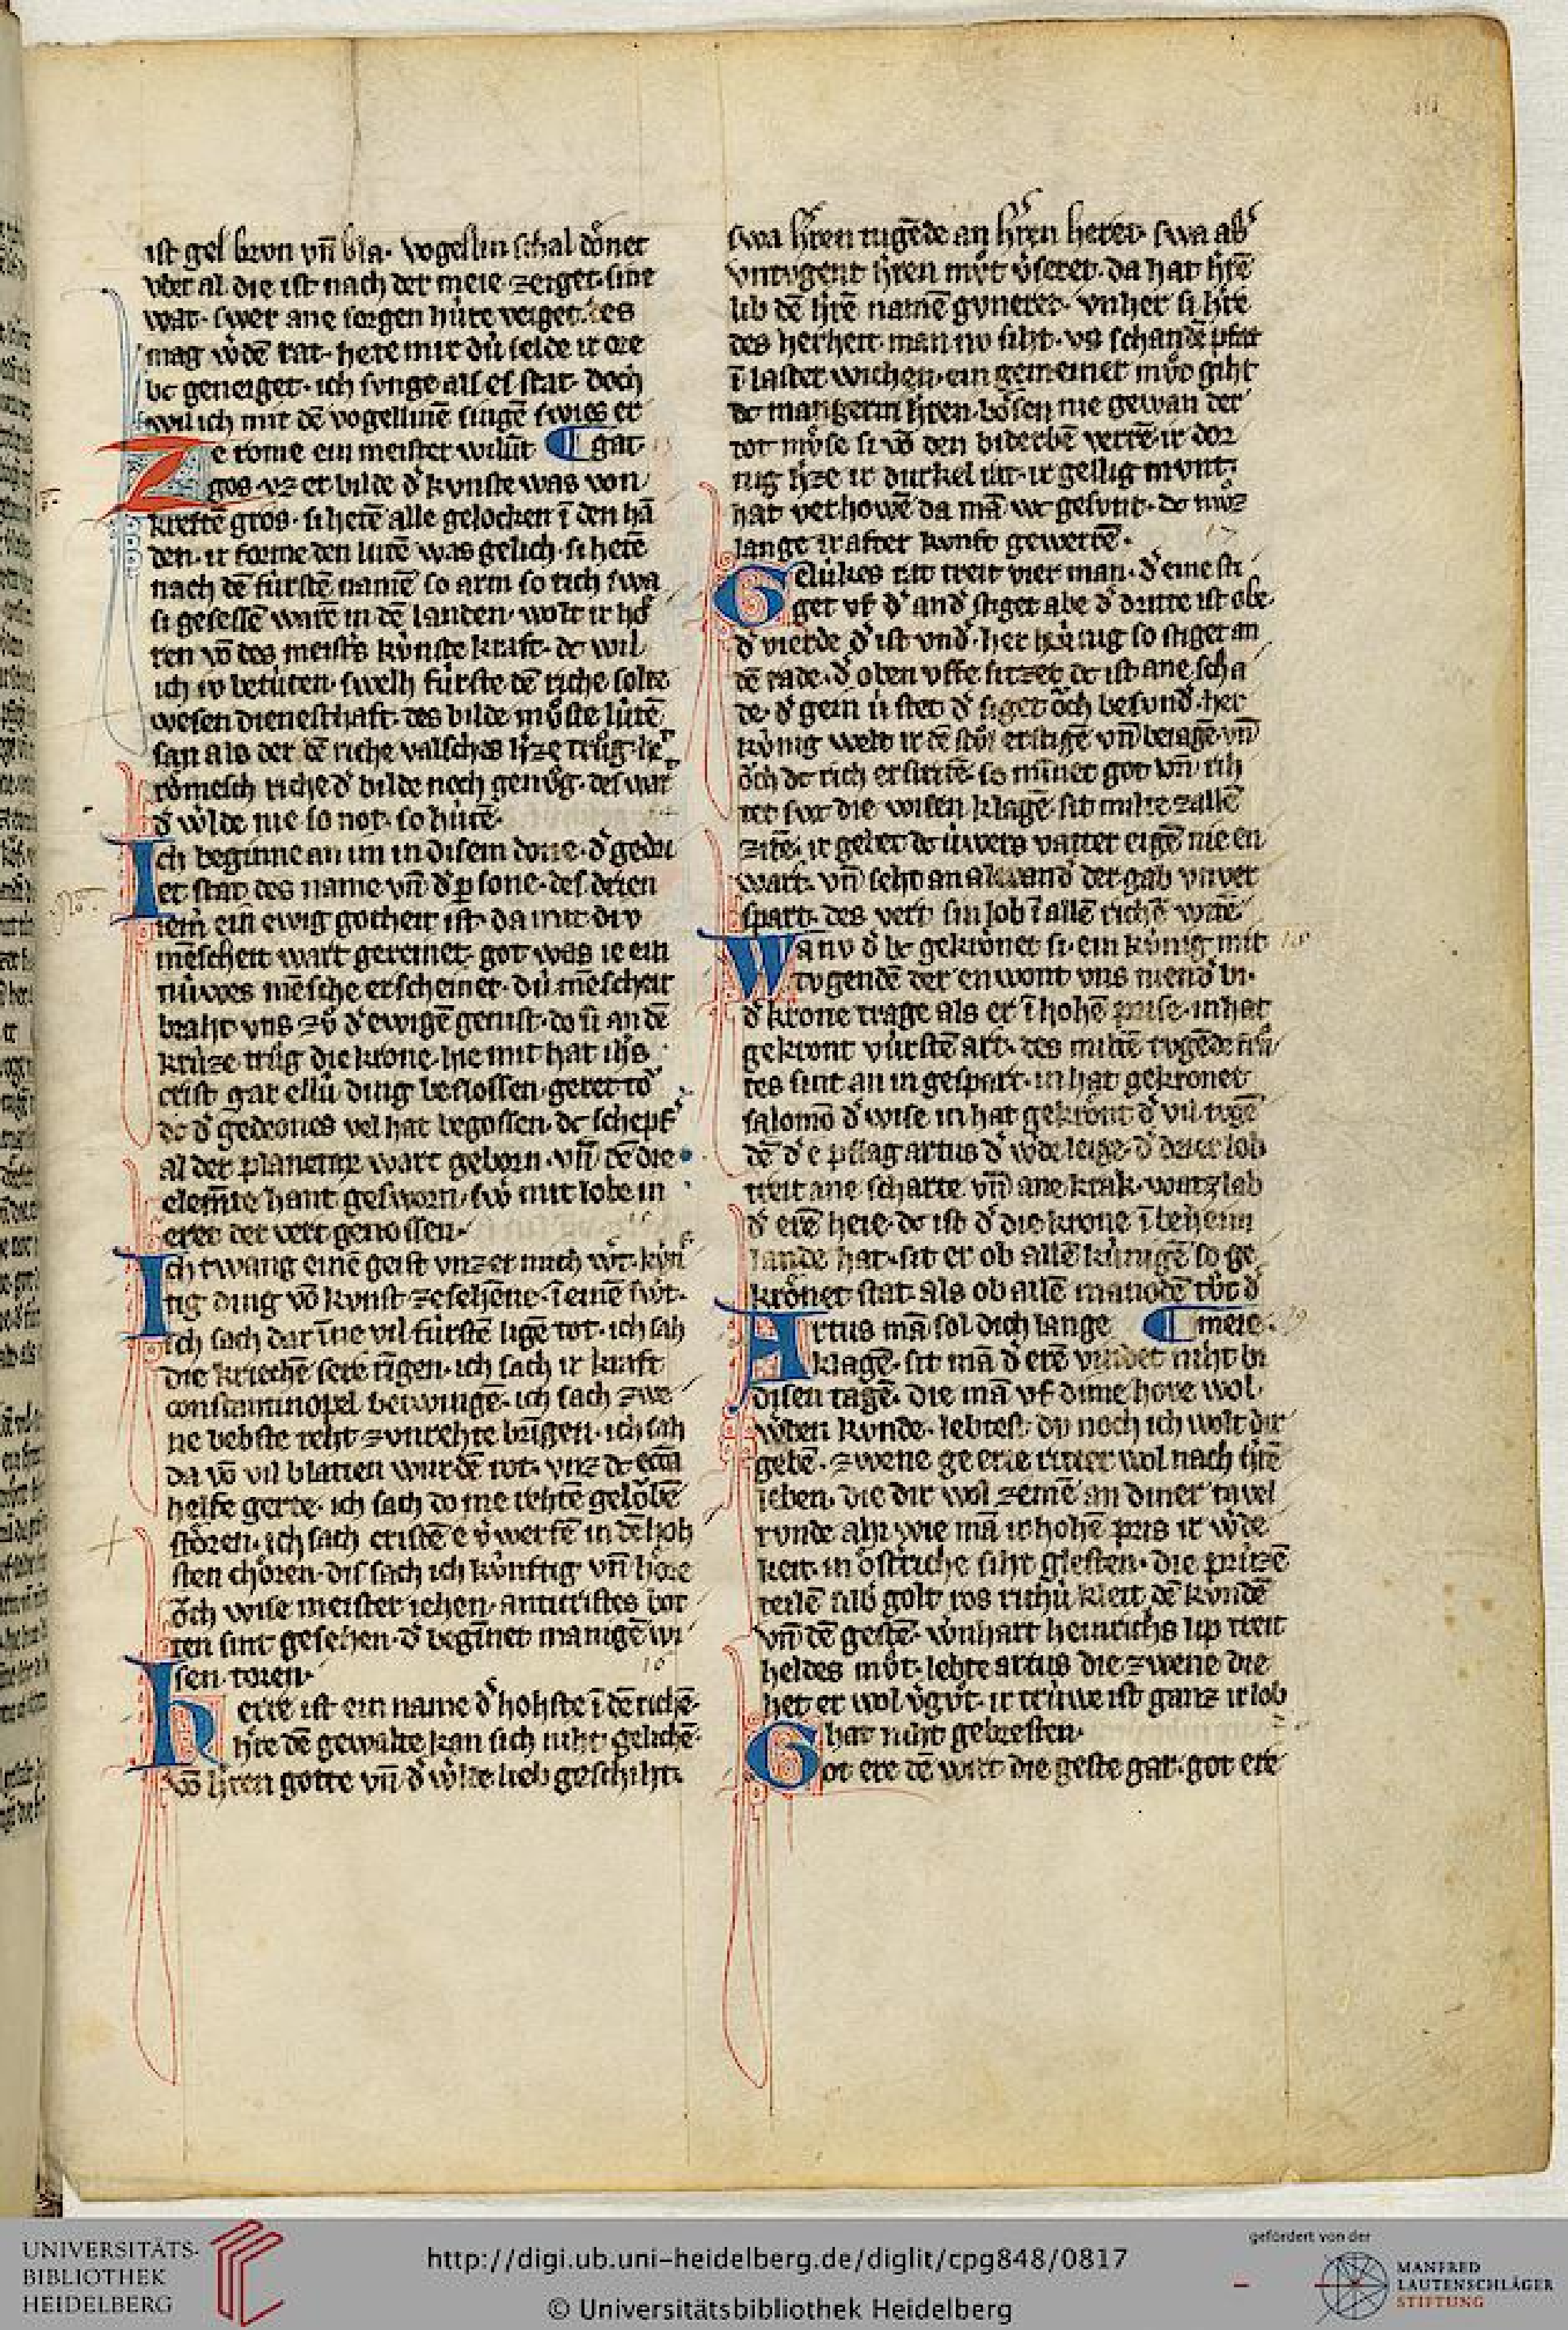 ist gel brvn vn̄ bla· vogellin schal dônet
vber al die ist nach der meie zeiget· sine
wat· swer ane sorgen hùre veiget· des
mag w̄dē rat· hete mir dù selde ir ore
bc geneiget· ich svnge als es stat· doch
wil ich mit dē vogellinē singē swies er
Ze rome ein meister wilūt ¶ gat·
gos· vz er bilde d̓ kvnste was von
kreftē gros· si hetē alle glocken ī den hā
den· ir forme den lùtē was gelich· si hetē
nach dē fùrstē namē so arm so rich swa
si gesessē warē in dē landen· wolt ir hô
ren vō des meist̓s kùnste kraft· dc wil
ich iv betùten· swelh fùrste dē riche solte
wesen diensthaft· des bilde mv̊ste lùtē
san als der dē riche valsches h̓ze trůg· he
rômesch riche d̓ bilde noch genůg· des wart
d̓ w̓lde nie so not· so hùrē·
Ich beginne an im in disem done· d̓ gedri
et stat des name vn̄ d̓ p̱sone· des drien
iem̓ ein ewig gotheit ist· da mit div
mēscheit wart gereinet· got was ie ein
nùwes mēsche erscheinet· dù mēscheit
braht vns zů d̓ ewigē genist· do si an dē
krùze trůg die krone· hie mit hat ih̄s
crist gar ellù ding beslossen· geret to̓
do d̓ gedeones vel hat begossen· dc schepf̓
al der planeten wart geborn· vn̄ dē die
elem̄te hant gesworn· swo mit lobe in
eret der vert genossen·
Ich twang einē geist vnz er mich w̓t· kùnf
tig ding vō kvnst ze sehēne· ī einē swt·
ich sach dar īne vil fùrstē ligē tot· ich sah
die kriechē sere rīgen· ich sach ir kraft
constantinopel betwingē· ich sach zwe
ne bebste reht zvnrehte brīgen· ich sah
da vō vil blatten wurdē rot· vnz dc eccā
helfe gerte· ich sach do me rehtē gelôbē
stôren· ich sach cristē e v̓werfē in dē hôh
sten chôren· dis sach ich kùnftig vn̄ hôre
ôch wise meister iehen· anticristes bot
ten sint gesehen· d̓ begīnet manigē wi
sen toren·
herre ist ein name d̓ hohste ī dē richē·
h̓re dē gewalte kan sich niht gelichē·
vō h̓ren gotte vn̄ d̓ w̓lte lieb geschiht·
swa h̓ren tugēde an h̓ren heret· swa ab̓
vntvgent h̓ren mv̊t v̓seret· da hat h̓rē
lib dē h̓rē namē gvneret· vnher si h̓re
des herheit man nv siht· vf schandē pfat
ī laster wichen· ein gemeinet mv̊d giht
dc mangerm h̓ren· bôsen nie gewan der
tot mv̊se si vō den biderbē verrē· ir dor
nig h̓ze ir durkel lùt· ir gellig mvnt·
hat verhowē da mā wc gesvnt· dc mv̊z
lange ir after kvnft gewerrē·
Gelùkes rat treit vier man· d̓ eine sti
get vf d̓ and̓ stiget abe d̓ dritte ist obe·
d̓ vierde d̓ ist vnd̓· her kùnig so stiget an
dē rade· d̓ oben vffe sitzet dc ist ane scha
de· d̓ gein ù stet d̓ siget ôch besund̓· her
kùnig welt ir dē stůl erstigē vn̄ beiagē· vn̄
ôch dc rich erstritē· so mīnet got vn̄ rih
tet svs die witwen klagē· sit milte zallē
zitē· ir gebet dc ùwers vatter eigē nie en
wart· vn̄ seht an alexand̓ der gab vnver
spart· des vert sin lob ī allē richē witē·
Wa nv d̓ bc gekrônet si· ein kùnig mit
tvgendē der enwont vns niend̓ bi·
d̓ krone trage als er ī hohē prise· in hat
gekront vùrstē art· des miltē tvgēde
tes sint an in gespart· in hat gekronet
salomō d̓ wise in hat gekrônt d̓ vil tvgē
dē d̓ e pflag artus d̓ w̓de leige· d̓ d
treit ane scharte vn̄ ane krak· wntzlab
d̓ erē heie· dc ist d̓ die krone ī beheim
lande hat· sit er ob allē kùnigē so ge
krônet stat· als ob allē manodē tůt d̓
Artus mā sol dich lange ¶ meie·
klagē· sit mā d̓ erē vindet niht bi
disen tagē· die mā vf dime hove wol
w̓den kvnde· lebtest dv noch ich wolt dir
gebē· zwene ge erte ritter wol nach h̓rē
leben· die dir wol zemē an diner tavel
rvnde· ahi wie mā ir hohē pris ir w̓de
keit· in ôst̓riche siht glesten· die prùzē
teilē silb̓ golt ros richù kleit dē kvndē
vn̄ dē gestē· wnhart heinrichs lip treit
heldes mv̊t· lebte artus die zwene die
het er wol v̓gv̊t· ir trùwe ist ganz ir lob
hat niht gebresten·
Got ere dē wirt die geste gar· got ere
UNIVERSITÄTS-
BIBLIOTHEK
HEIDELBERG
http://digi.ub.uni-heidelberg.de/diglit/cpg848/0817
© Universitätsbibliothek Heidelberg
gefördert von der
MANFRED
LAUTENSCHLÄGER
STIFTUNG